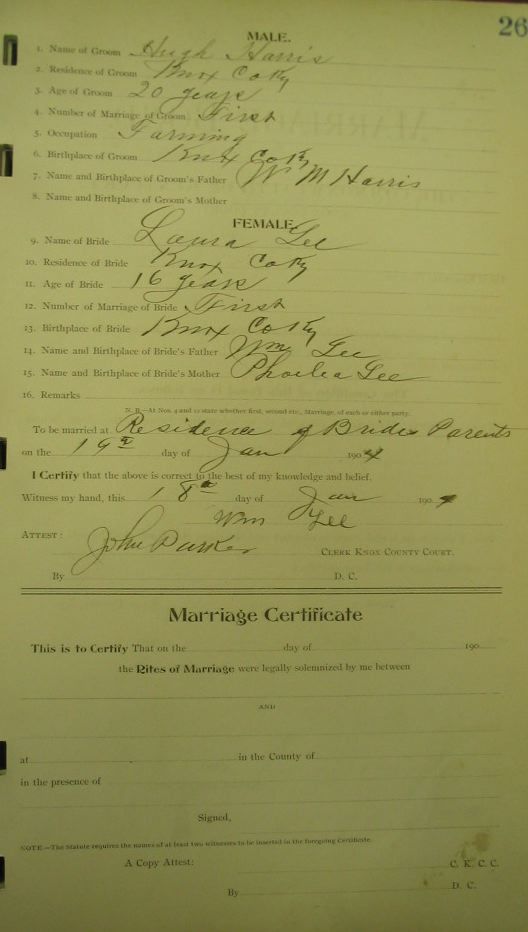 26
MALE.
1. Name of Groom Hugh Harris
2. Residence of Groom Knox Co Ky
3. Age of Groom 20 years
4. Number of Marriage of Groom First
5. Occupation Farming
6. Birthplace of Groom Knox Co Ky
7. Name and Birthplace of Groom's Father W M Harris
8. Name and Birthplace of Groom's Mother
FEMALE.
9. Name of Bride Laura Lee
10. Residence of Bride Knox Co Ky
11. Age of Bride 16 years
12. Number of Marriage of Bride First
13. Birthplace of Bride Knox Co Ky
14. Name and Birthplace of Bride's Father Wm Lee
15. Name and Birthplace of Bride's Mother Phoebea Lee
16. Remarks
N. B.—At Nos. 4 and 12 state whether first, second etc., Marriage, of each or either party.
To be married at Residence of Brides Parents
on the 19th day of Jan 1904
I Certify that the above is correct to the best of my knowledge and belief.
Witness my hand, this 18th day of Jan 1904
Wm Lee
ATTEST: John Parker CLERK KNOX COUNTY COURT.
By D. C.
Marriage Certificate
This is to Certify That on the day of 190
the Rites of Marriage were legally solemnized by me between
AND
at in the County of
in the presence of
Signed,
NOTE.—The Statute requires the names of at least two witnesses to be inserted in the foregoing Certificate.
A Copy Attest: C. K. C. C.
By D. C.